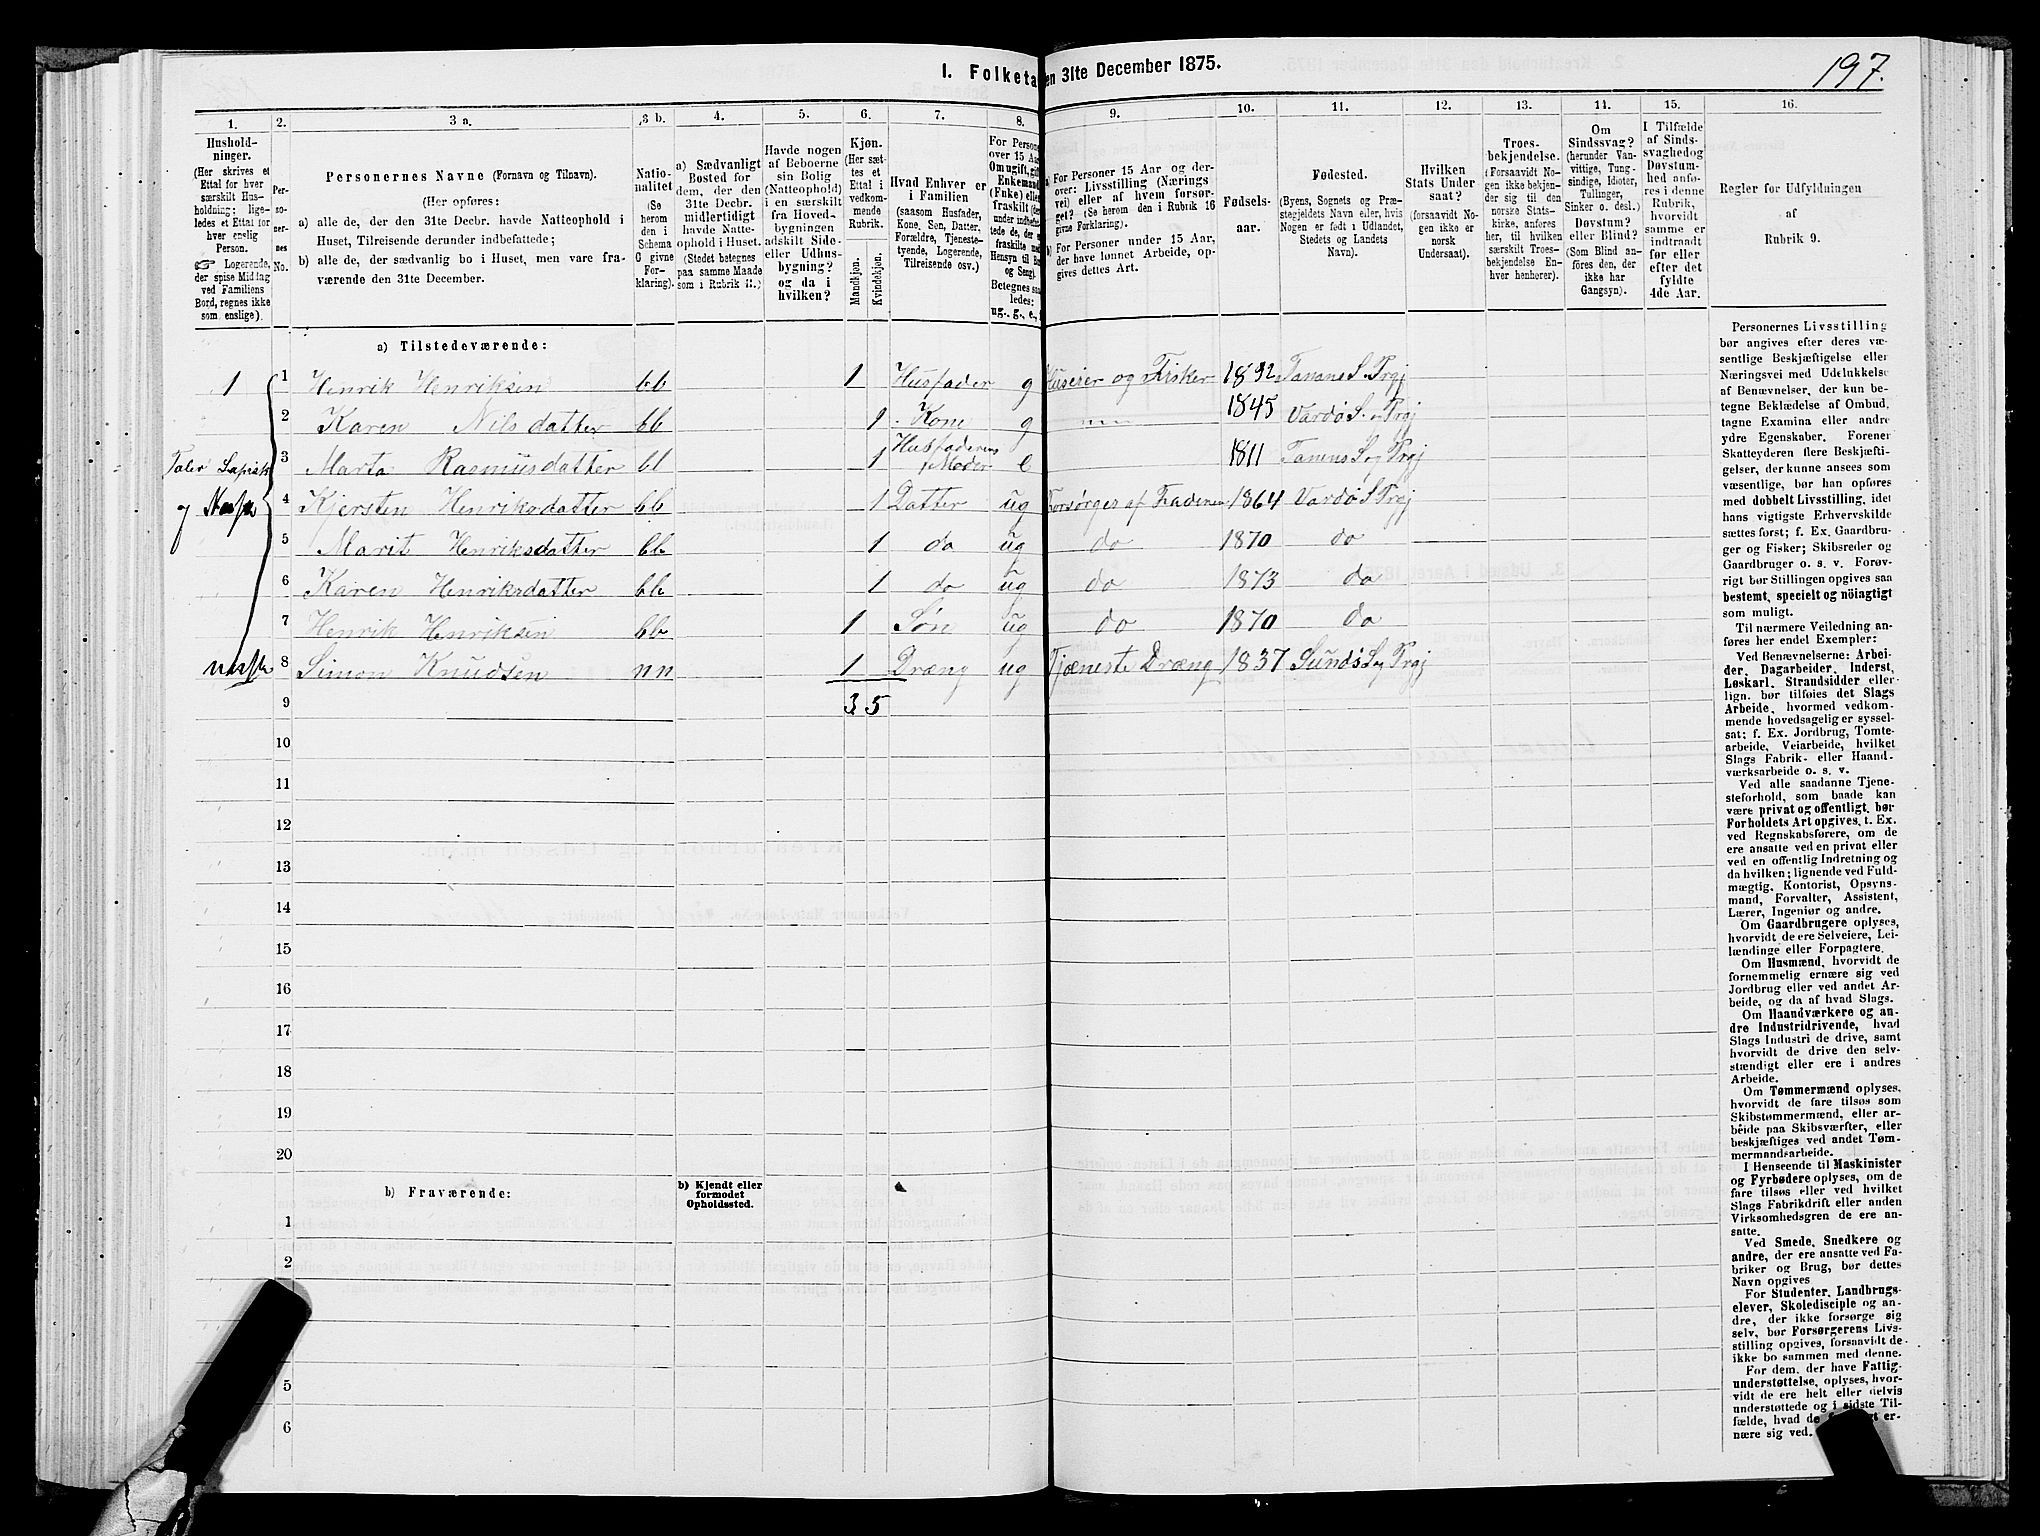 197.
I. Folketa en 31te December 1875.
1. 2. 3 a. 3 b. 4. 5. 6. 7. 8. 9. 10. 11. 12. 13. 14. 15. 16.
Hushold-
ninger.
(Her skrives et
Ettal for hver
særskilt Hus-
holdning; lige-
ledes et Ettal for
hver enslig
Person.
☞ Logerende,
der spise Middag
ved Familiens
Bord, regnes ikke
som enslige).
Per-
so-
ner-
nes
No.
Personernes Navne (Fornavn og Tilnavn).
(Her opføres:
a) alle de, der den 31te Decbr. havde Natteophold i
Huset, Tilreisende derunder indbefattede;
b) alle de, der sædvanlig bo i Huset, men vare fra-
værende den 31te December.
Natio-
nalitet
(Se
herom
den i
Schema
C givne
For-
klaring).
a) Sædvanligt
Bosted for
dem, der den
31te Decbr.
midlertidigt
havde Natte-
ophold i Huset.
(Stedet betegnes
paa samme Maade
som i Rubrik 11.)
Havde nogen
af Beboerne
sin Bolig
(Natteophold)
i en særskilt
fra Hoved-
bygningen
adskilt Side-
eller Udhus-
bygning?
og da i
hvilken?
Kjøn.
(Her sæt-
tes et
Ettal i
vedkom-
mende
Rubrik.
Mandkjøn.
Kvindekjøn.
Hvad Enhver er
i Familien
(saasom Husfader,
Kone, Søn, Datter,
Forældre, Tjeneste-
tyende, Logerende,
Tilreisende osv.)
For Person
over 15 Aar
Om ugift, gift
Enkemand
(Enke) eller
fraskilt
under indbefat-
tede de, der
fraskilte med
Hensyn til Bo
og Seng).
Betegnes saa
ledes:
ug., g., e.,
a) For Personer 15 Aar og der-
over: Livsstilling (Nærings
vei) eller af hvem forsør-
get? (Se herom den i Rubrik 16
givne Forklaring).
b) For Personer under 15 Aar,
der have lønnet Arbeide, op-
gives dettes Art.
Fødsels-
aar.
Fødested.
(Byens, Sognets og Præ-
stegjeldets Navn eller, hvis
Nogen er født i Udlandet,
Stedets og Landets
Navn).
Hvilken
Stats Under
saat?
(forsaavidt No-
gen ikke er
norsk
Undersaat).
Troes-
bekjendelse.
(Forsaavidt No-
gen ikke bekjen-
der sig til den
norske Stats-
kirke, anføres
her, til hvilken
særskilt Troes-
bekjendelse En-
hver henhører).
Om
Sindssvag?
(herunder Van-
vittige, Tung-
sindige, Idioter,
Tullinger,
Sinker o. desl.)
Døvstum?
eller Blind?
(Som Blind an-
føres den, der
ikke har
Gangsyn).
I Tilfælde
af Sinds-
svaghed og
Døvstum-
hed anfø-
res i denne
Rubrik,
hvorvidt
samme er
indtraadt
før eller
efter det
fyldte
4de Aar.
Regler for Udfyldningen
af
Rubrik 9.
a) Tilstedeværende:
1 1 Henrik Henriksen bb 1 Husfader g Huseier og Fisker 1832 Tanans S. Prgj
2 Karen Nilsdatter bb 1 Kone g 1845 Vardø S. og Prgj
Taler Lapisk 3 Marta Rasmusdatter bl 1 Husfaderens Moder e 1811 Tanens S og Prgj
og Norsk 4 Kjersten Henriksdatter bb 1 Datter ug Forsørges af Faderen 1864 Vardø S Prgj
5 Marit Henriksdatter bb 1 do ug do 1870 do
6 Karen Henriksdatter bb 1 do ug do 1873 do
7 Henrik Henriksen bb 1 Søn ug do 1870 do
norsk 8 Simon Knudsen nn 1 Dræng ug Tjæneste Dræng 1837 Sundø S og Prgj
9 3 5
10
11
12
13
14
15
16
17
18
19
20
b) Fraværende:
b) Kjendt eller
formodet
Opholdssted.
1
2
5
6
Personernes Livsstilling
bør angives efter deres væ-
sentlige Beskjæftigelse eller
Næringsvei med Udelukkelse
af Benævnelser, der kun be-
tegne Beklædelse af Ombud,
tagne Examina eller andre
ydre Egenskaber. Forener
Skatteyderen flere Beskjæfti-
gelser, der kunne ansees som
væsentlige, bør han opføres
med dobbelt Livsstilling, idet
hans vigtigste Erhvervskilde
sættes først; f. Ex. Gaardbru-
ger og Fisker; Skibsreder og
Gaardbruger o. s. v. Forøv-
rigt bør Stillingen opgives saa
bestemt, specielt og nöiagtigt
som muligt.
Til nærmere Veiledning an-
føres her endel Exempler:
Ved Benævnelserne: Arbei-
der, Dagarbeider, Inderst,
Løskarl, Strandsidder eller
lign. bør tilføies det Slags
Arbeide, hvormed vedkom-
mende hovedsagelig er syssel-
sat; f. Ex. Jordbrug, Tomte-
arbeide, Veiarbeide, hvilket
Slags Fabrik- eller Haand-
værksarbeide o. s. v.
Ved alle saadanne Tjene-
steforhold, som baade kan
være privat og offentligt, bør
Forholdets Art opgives, t. Ex.
ved Regnskabsførere, om de
ere ansatte ved en privat eller
ved en offentlig Indretning og
da hvilken; lignende ved Fuld-
mægtig, Kontorist, Opsyns-
mand, Forvalter, Assistent,
Lærer, Ingeniør og andre.
Om Gaardbrugere oplyses,
hvorvidt de ere Selveiere, Lei-
lændinge eller Forpagtere.
Om Husmænd, hvorvidt de
fornemmelig ernære sig ved
Jordbrug eller ved andet Ar-
beide, og da af hvad Slags.
Om Haandværkere og an-
dre Industridrivende, hvad
Slags Industri de drive, samt
hvorvidt de drive den selv-
stændigt eller ere i andres
Arbeide.
Om Tømmermænd oplyses,
hvorvidt de fare tilsøs som
Skibstømmermænd, eller ar-
beide paa Skibsværfter, eller
beskjæftiges ved andet Tøm-
mermandsarbeide.
I Henseende til Maskinister
og Fyrbødere oplyses, om de
fare tilsøs eller ved hvilket
Slags Fabrikdrift eller anden
Virksomhedsgren de ere an-
satte.
Ved Smede, Snedkere og
andre, der ere ansatte ved Fa-
briker og Brug, bør dettes
Navn opgives
For Studenter, Landbrugs-
elever, Skoledisciple og an-
dre, der ikke forsørge sig
selv, bør Forsørgerens Livs-
stilling opgives, forsaavidt de
ikke bo sammen med denne.
For dem, der have Fattig-
understøttelse, oplyses, hvor-
vidt de ere helt eller delvis
understøttede og i sidste Til-
fælde, hvad de er-
nære sig ved.